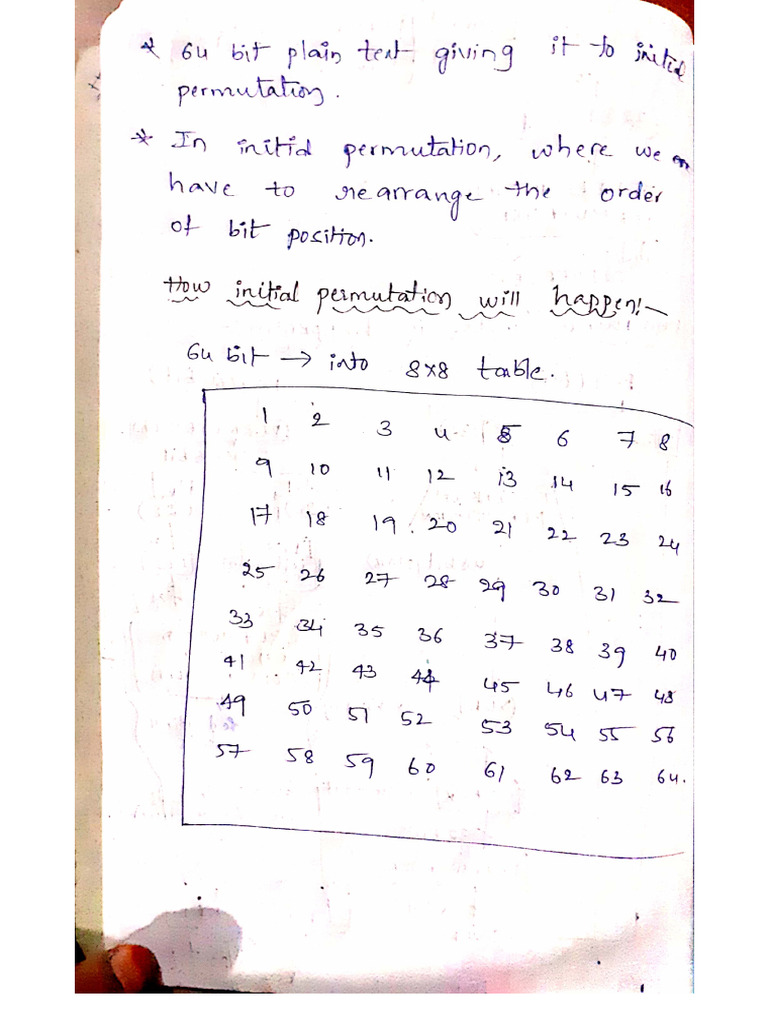 * 64 bit plain text giving it to initial
permutation.
* In initial permutation, where we
have to rearrange the order
of bit position.
How initial permutation will happen:-
64 bit → into 8x8 table.
1 2 3 4 5 6 7 8
9 10 11 12 13 14 15 16
17 18 19 20 21 22 23 24
25 26 27 28 29 30 31 32
33 34 35 36 37 38 39 40
41 42 43 44 45 46 47 48
49 50 51 52 53 54 55 56
57 58 59 60 61 62 63 64.